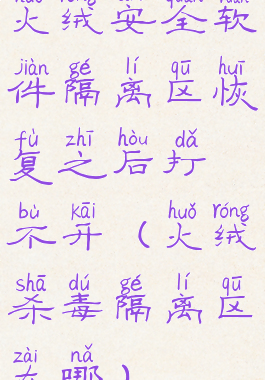 火绒安全软
jiàn gé lí qū huī
件隔离区恢
fù zhī hòu dǎ
复之后打
bù kāi huǒ róng
不开（火绒
shā dú gé lí qū
杀毒隔离区
zài nǎ
在哪）